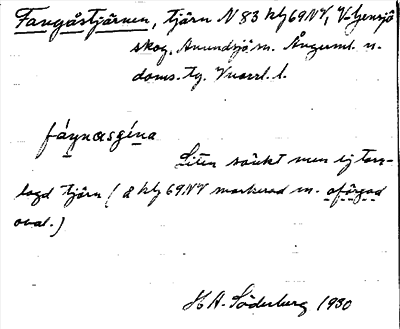 Fangåstjärnen, tjärn N 83 hfj 69NV, V-tjensjö
skog, Anundsjö sn. Ångerml. n.
doms. tg. Vuorrl. l.
fáŋnasgéna
Liten sänkt men ej torr-
lagd tjärn (å kfj 69NV markerad m. ofärgad
oval.)
H A. Söderberg 1930